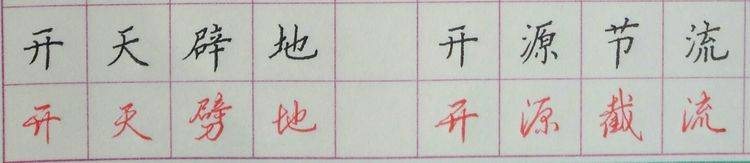 开天辟地 开源节流
开天劈地 开源截流